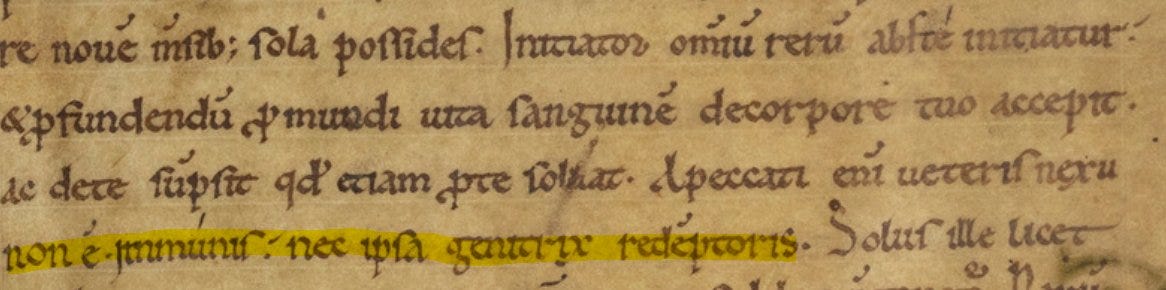 re nouē m̄sib; sola possides. Initiator om̄iū rerū abste initiatur.
& ꝓfundendū ꝓ mundi uita sanguinē decorpore tuo accepit.
ac dete sūpsit qđ etiam ꝓ te soluat. Apeccati eni᷎ ueteris nexu
non ē immunis. nec ipsa genitrix redēptoris. Solus ille licet